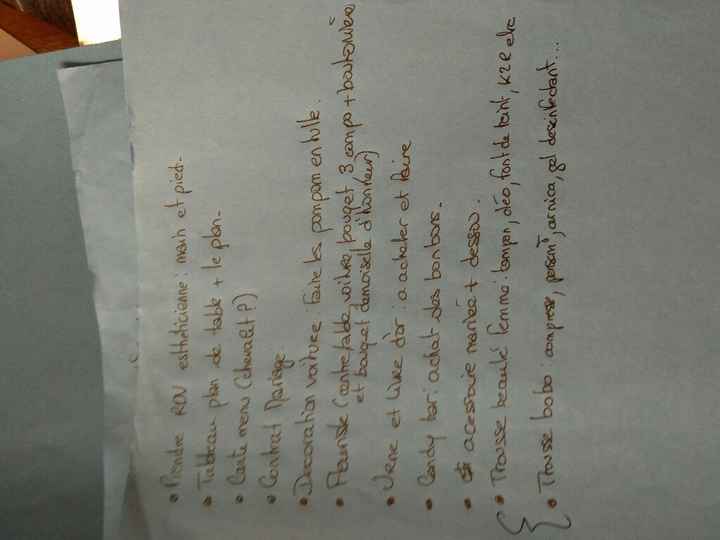 • Prendre RDV esthéticienne : main et pied.
• Tableau plan de table + le plan.
• Carte menu (chevalet ?)
• Contrat Mariage
• Decoration voiture : faire les pompom en tulle.
• Fleuriste (centre table, voiture, bouquet 3 compo + boutonnière
et bouquet demoiselle d'honneur)
• Urne et Livre d'or : a acheter et faire
• Candy bar : achat des bonbons.
• acessoire mariée + dessou.
• Trousse beauté femme : tampon, déo, font de teint, k2R etc
• Trousse bobo : compresse, pansem^t, arnica, gel desinfectant...